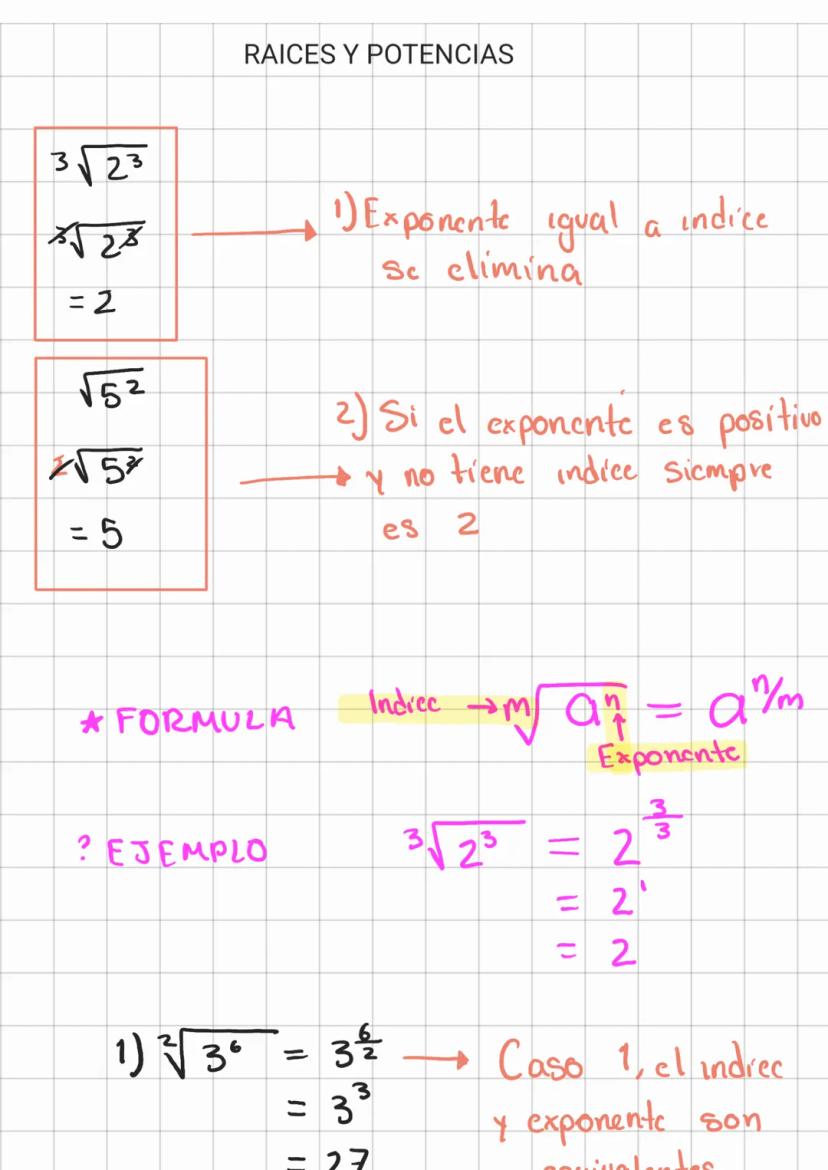 RAICES Y POTENCIAS
³√2³
³√2³
= 2
1) Exponente igual a indice
se elimina
√5²
²√5²
= 5
2) Si el exponente es positivo
y no tiene indice siempre
es 2
* FORMULA
Indice → ᵐ√aⁿ = aⁿ/ᵐ
Exponente
? EJEMPLO
³√2³ = 2^(3/3)
= 2¹
= 2
1) ²√3⁶ = 3^(6/2)
= 3³
= 27
Caso 1, el indice
y exponente son
equivalentes